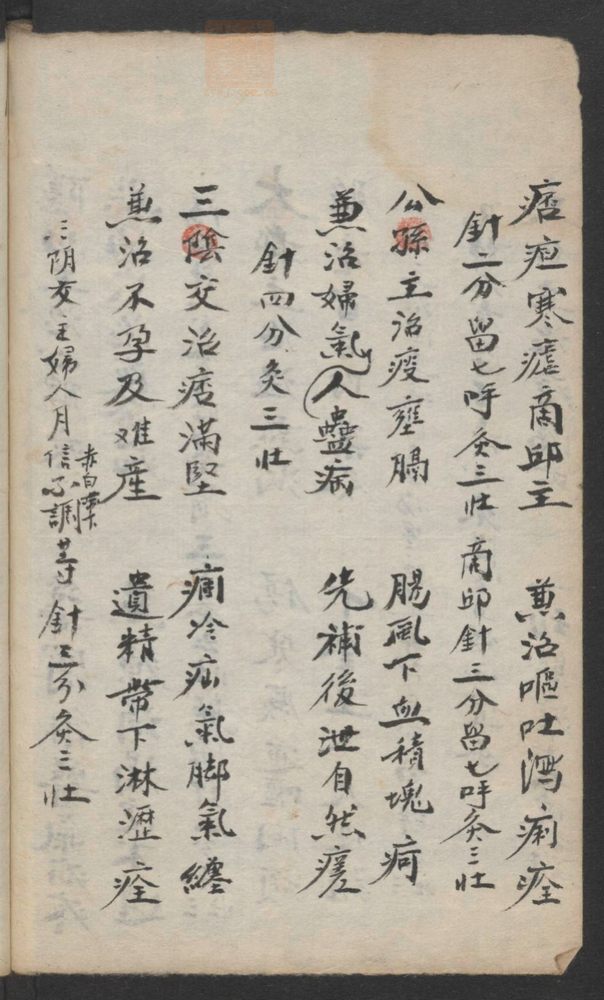 痞疸寒瘧商邱主　兼治嘔吐瀉痢痊
針二分留七呼灸三壯　商邱針三分留七呼灸三壯
公孫主治疫壅膈　腸風下血積塊疴
兼治婦人氣蠱病　先補後泄自然瘥
針四分灸三壯
三陰交治痞滿堅　痼冷疝氣脚氣纏
兼治不孕及难產　遺精帶下淋瀝痊
三阴交主婦人月信不調赤白帶下等針三分灸三壯